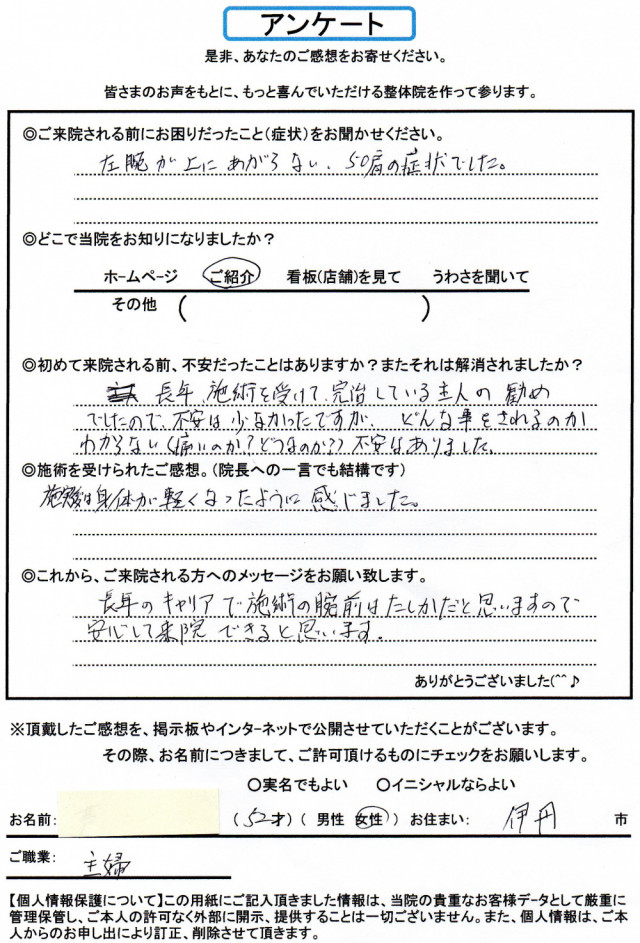 アンケート
是非、あなたのご感想をお寄せください。
皆さまのお声をもとに、もっと喜んでいただける整体院を作って参ります。
◎ご来院される前にお困りだったこと(症状)をお聞かせください。
左腕が上にあがらない、50肩の症状でした。
◎どこで当院をお知りになりましたか？
ホームページ ご紹介 看板(店舗)を見て うわさを聞いて
その他 ( )
◎初めて来院される前、不安だったことはありますか？またそれは解消されましたか？
長年、施術を受けて、完治している主人の勧め
でしたので、不安は少なかったですが、どんな事をされるのか
わからない(痛いのか？どうなのか？)不安はありました。
◎施術を受けられたご感想。(院長への一言でも結構です)
施術後は身体が軽くなったように感じました。
◎これから、ご来院される方へのメッセージをお願い致します。
長年のキャリアで施術の腕前はたしかだと思いますので
安心して来院できると思います。
ありがとうございました(^^♪
※頂戴したご感想を、掲示板やインターネットで公開させていただくことがございます。
その際、お名前につきまして、ご許可頂けるものにチェックをお願いします。
○実名でもよい ○イニシャルならよい
お名前: (52才) ( 男性 女性 ) お住まい: 伊丹 市
ご職業: 主婦
【個人情報保護について】この用紙にご記入頂きました情報は、当院の貴重なお客様データとして厳重に
管理保管し、ご本人の許可なく外部に開示、提供することは一切ございません。また、個人情報は、ご本
人からのお申し出により訂正、削除させて頂きます。